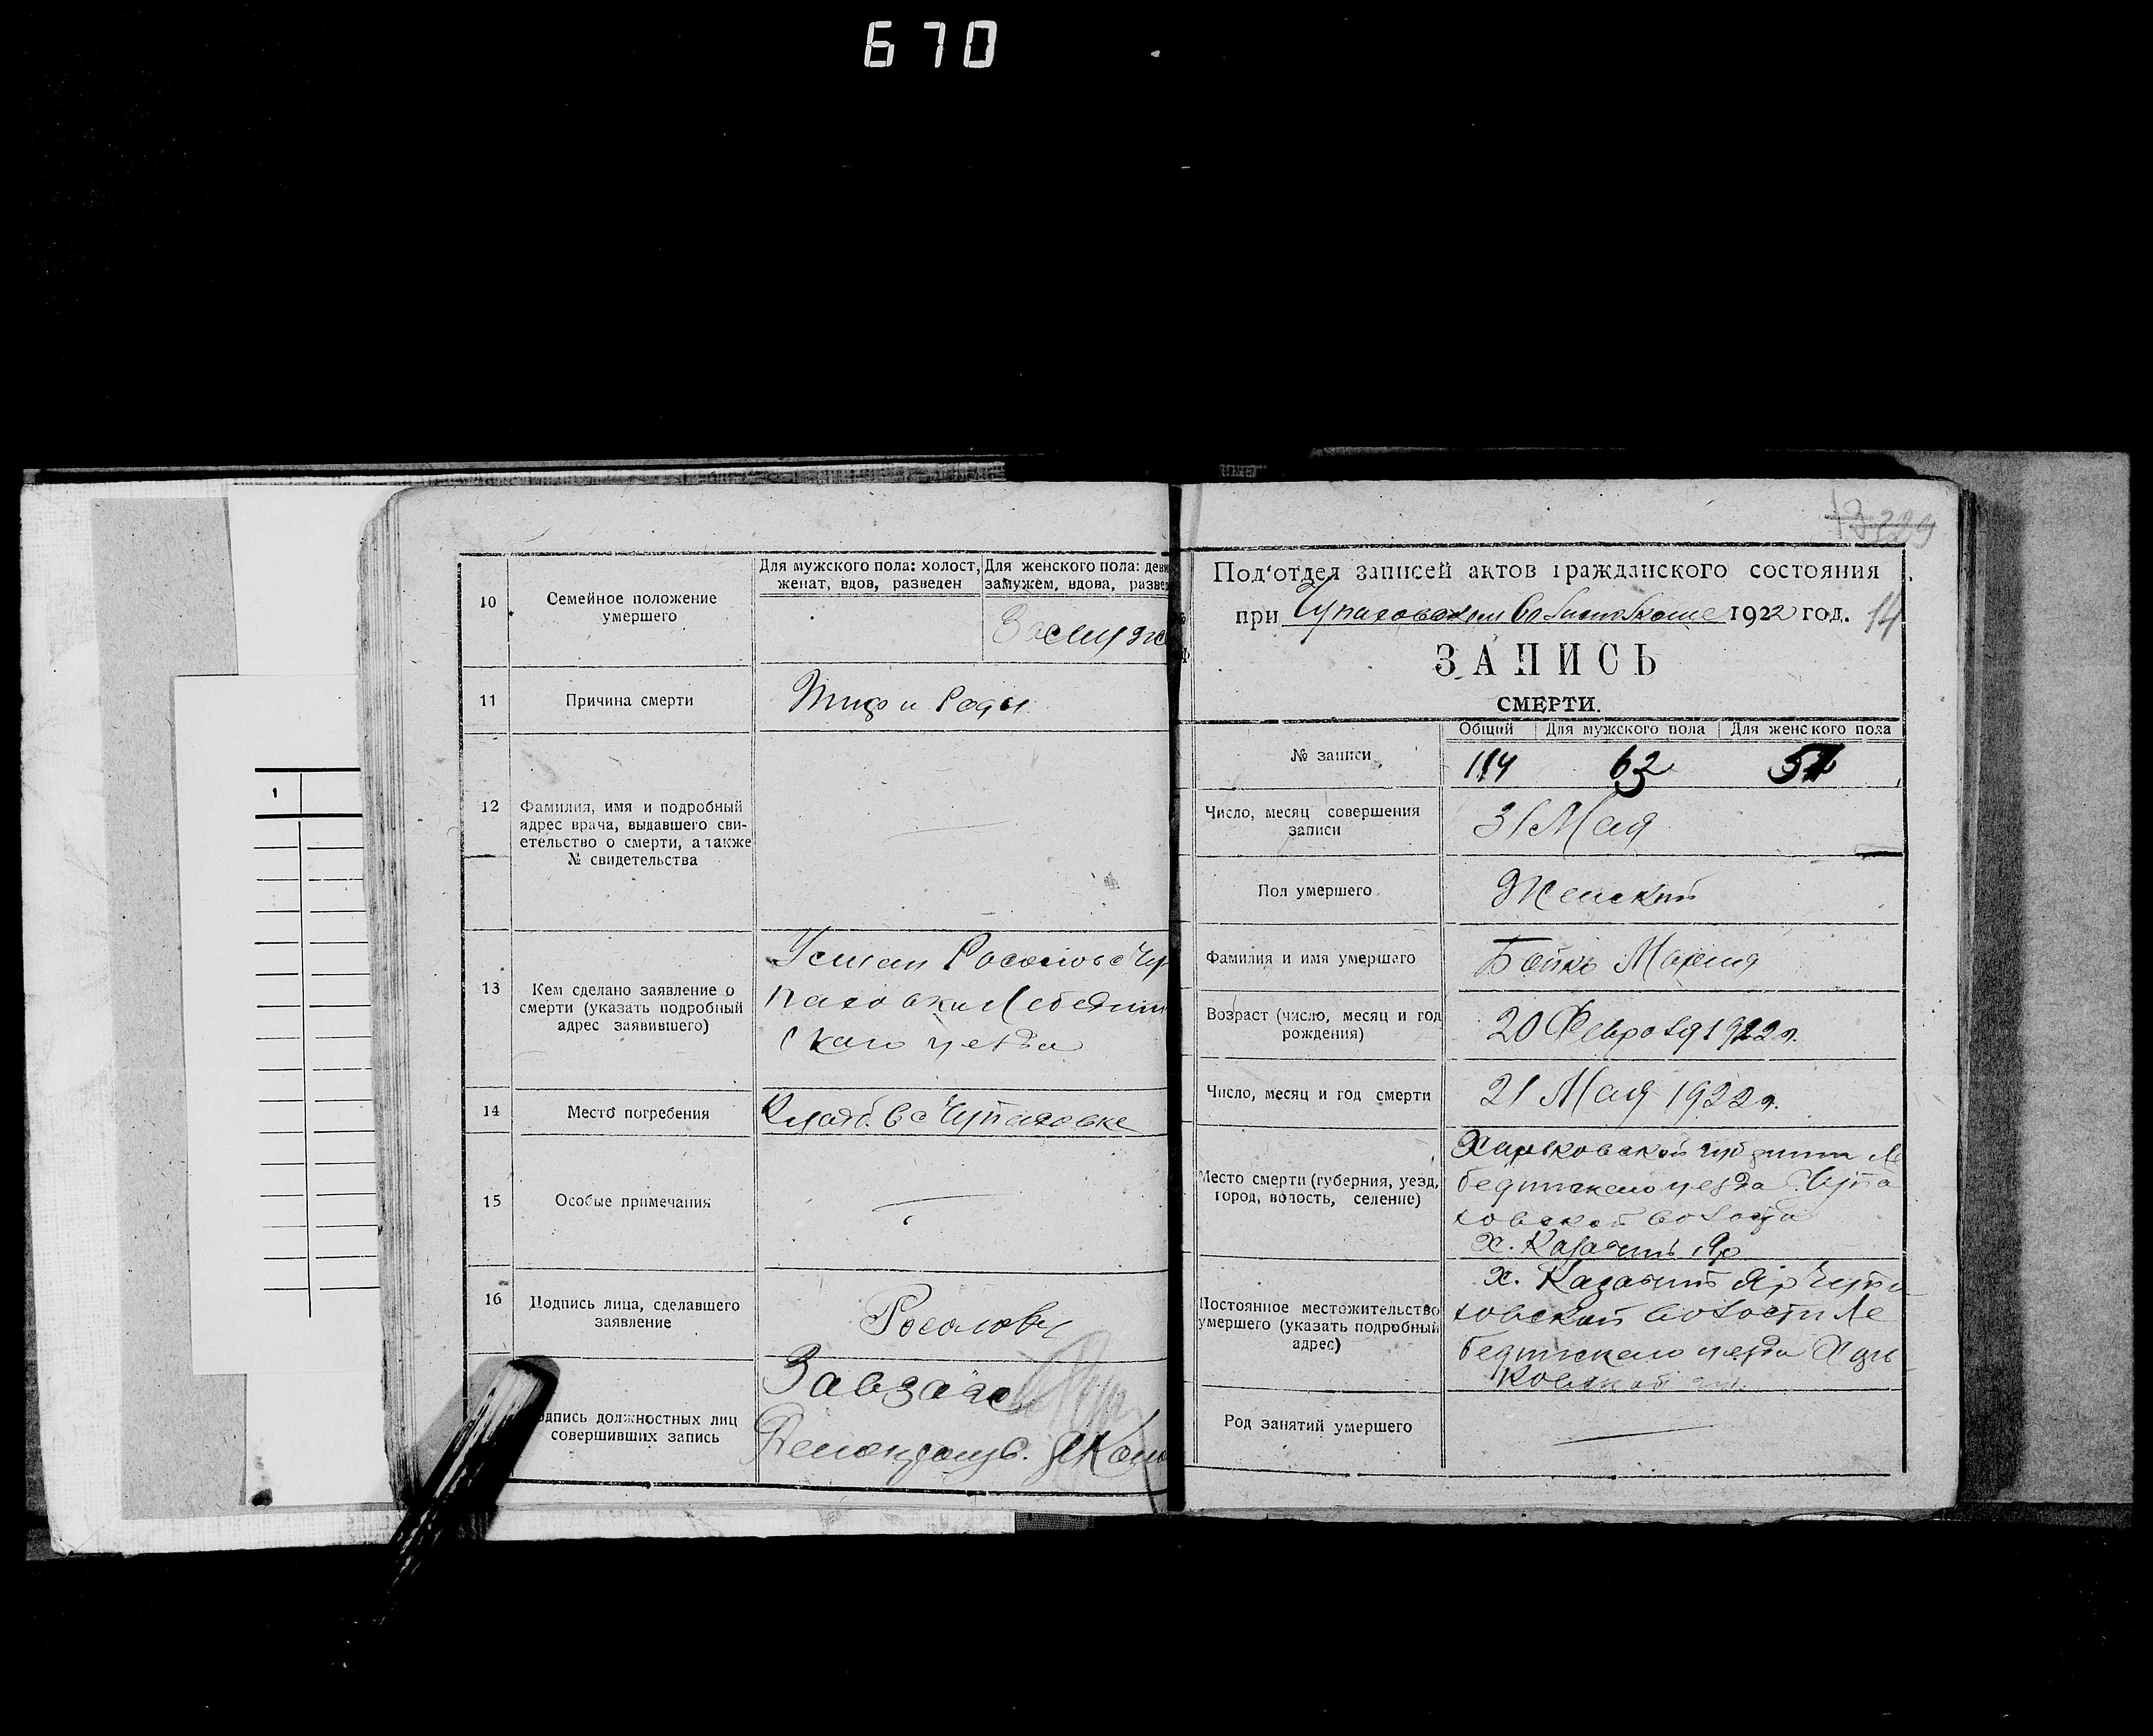 670
10
Семейное положение
умершего
Для мужского пола: холост,
женат, вдов, разведен
Для женского пола: деви
замужем, вдова, разве
Замуж
11
Причина смерти
12
Фамилия, имя и подробный
адрес врача, выдавшего сви-
етельство о смерти, а также
№ свидетельства
13
Кем сделано заявление о
смерти (указать подробный
адрес заявившего)
Росолов с Чу
паховки Лебедин
ского уезда
14
Место погребения
Кладб. в с Чупаховке
15
Особые примечания
16
Подпись лица, сделавшего
заявление
Росолов
одпись должностных лиц
совершивших запись
Завзагс
Делопроизв.
1
13 299
Под‘отдел записей актов гражданского состояния
при Чупаховском Волисполкоме 1922 год.
14
ЗАПИСЬ
СМЕРТИ.
№ записи
Общий Для мужского пола Для женского пола
114 62 51
Число, месяц совершения
записи
31 Мая
Пол умершего
Женский
Фамилия и имя умершего
Бойко Мария
Возраст (число, месяц и год
рождения)
20 Февраля 1922 г.
Число, месяц и год смерти
21 Мая 1922 г.
Место смерти (губерния, уезд,
город, волость, селение)
Харьковской губернии Ле
бединского уезда Чупа
ховской волости
х. Казачий Яр
Постоянное местожительство
умершего (указать подробный
адрес)
х. Казачий Яр Чупа
ховской волости Ле
бединского уезда Харь
ковской губ.
Род занятий умершего